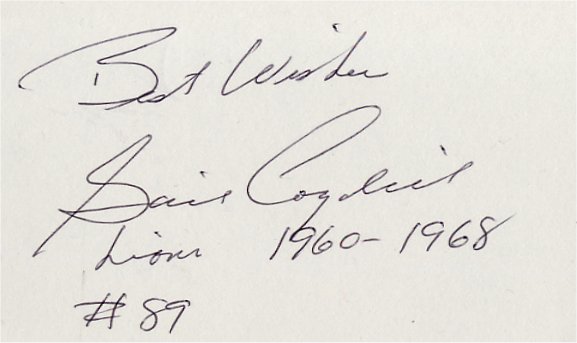 Best Wishes
Gail Cogdill
Lions 1960-1968
# 89